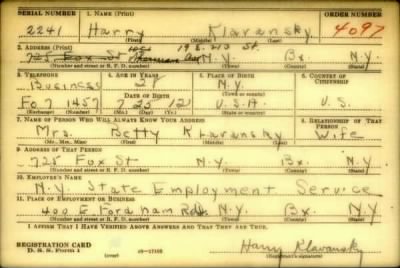 SERIAL NUMBER 1. NAME (Print) ORDER NUMBER
2241 Harry Klavansky 4097
(First) (Middle) (Last)
2. ADDRESS (Print) 19 E. 213 St.
725 Fox St N.Y Bx. N.Y
(Number and street or R. F. D. number) (Town) (County) (State)
3. TELEPHONE 4. AGE IN YEARS 5. PLACE OF BIRTH 6. COUNTRY OF CITIZENSHIP
Business N.Y
DATE OF BIRTH
Fo. 7 1457 7 25 12 U.S.A. U.S.
(Exchange) (Number) (Mo.) (Day) (Yr.) (State or country)
7. NAME OF PERSON WHO WILL ALWAYS KNOW YOUR ADDRESS 8. RELATIONSHIP OF THAT PERSON
Mrs. Betty Klavansky Wife
(Mr., Mrs., Miss) (First) (Middle) (Last)
9. ADDRESS OF THAT PERSON
725 Fox St N.Y. Bx. N.Y
(Number and street or R. F. D. number) (Town) (County) (State)
10. EMPLOYER'S NAME
N.Y. State Employment Service
11. PLACE OF EMPLOYMENT OR BUSINESS
400 E Fordham Rd. N.Y. Bx. N.Y
(Number and street or R. F. D. number) (Town) (County) (State)
I AFFIRM THAT I HAVE VERIFIED ABOVE ANSWERS AND THAT THEY ARE TRUE.
REGISTRATION CARD
D. S. S. Form 1 (over) Harry Klavansky
(Registrant's signature)